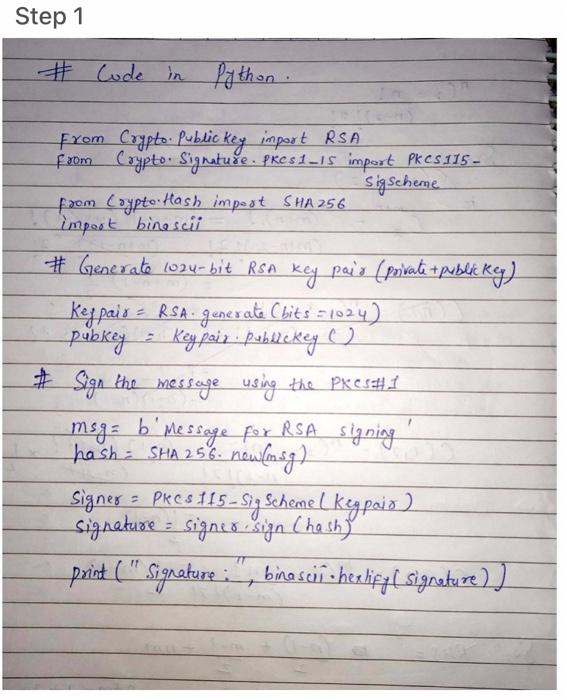 Step 1
# Code in Python.
From Crypto.Publickey import RSA
From Crypto.Signature.PKCS1_15 import PKCS115_
SigScheme
From Crypto.Hash import SHA256
import binascii
# Generate 1024-bit RSA key pair (private + public key)
Keypair = RSA.generate(bits = 1024)
pubkey = Keypair.publickey()
# Sign the message using the PKCS#1
msg = b'Message for RSA signing'
hash = SHA256.new(msg)
Signer = PKCS115_SigScheme(Keypair)
Signature = signer.sign(hash)
print("Signature:", binascii.hexlify(signature))